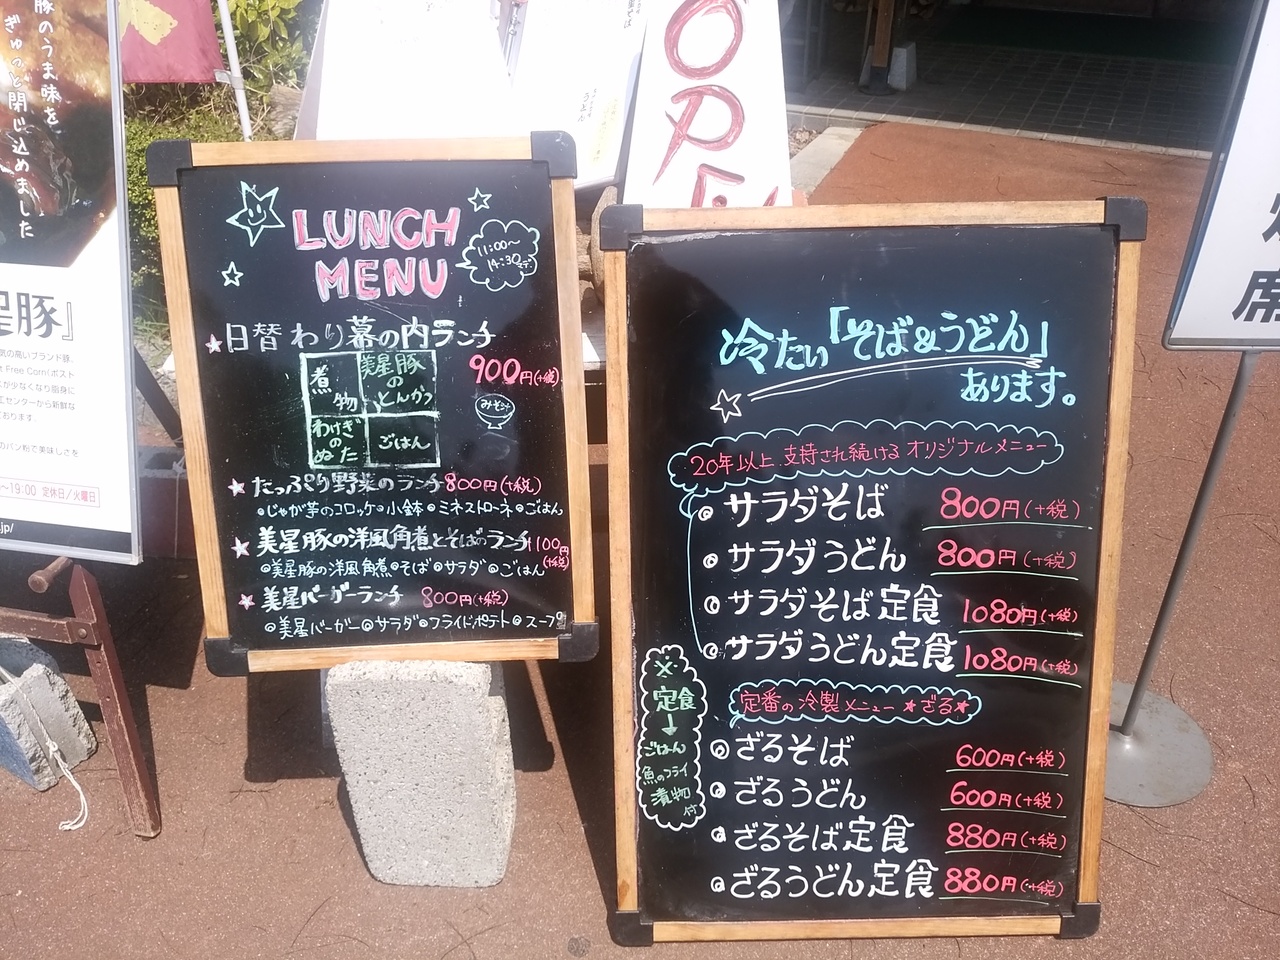 豚のうま味を
ぎゅっと閉じ込めました
星豚』
気の高いブランド豚。
t Free Corn(ポスト
が少なくなり脂身に
工センターから新鮮な
ております。
のパン粉で美味しさを
～19:00 定休日/火曜日
.jp/
うどん
OPE
席
LUNCH
MENU
11:00～
14:30まで
日替わり幕の内ランチ
900円(+税)
煮物
美星豚のとんかつ
わけぎのぬた
ごはん
みそ汁
たっぷり野菜のランチ 800円(+税)
じゃが芋のコロッケ 小鉢 ミネストローネ ごはん
美星豚の洋風角煮とそばのランチ 1100円(+税)
美星豚の洋風角煮 そば サラダ ごはん
美星バーガーランチ 800円(+税)
美星バーガー サラダ フライドポテト スープ
冷たい「そば&うどん」
あります。
20年以上支持され続けるオリジナルメニュー
サラダそば 800円(+税)
サラダうどん 800円(+税)
サラダそば定食 1080円(+税)
サラダうどん定食 1080円(+税)
※定食
↓
ごはん
魚のフライ
漬物
付
定番の冷製メニュー★ざる★
ざるそば 600円(+税)
ざるうどん 600円(+税)
ざるそば定食 880円(+税)
ざるうどん定食 880円(+税)